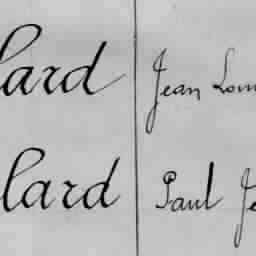 lard Jean Lou
lard Paul Je